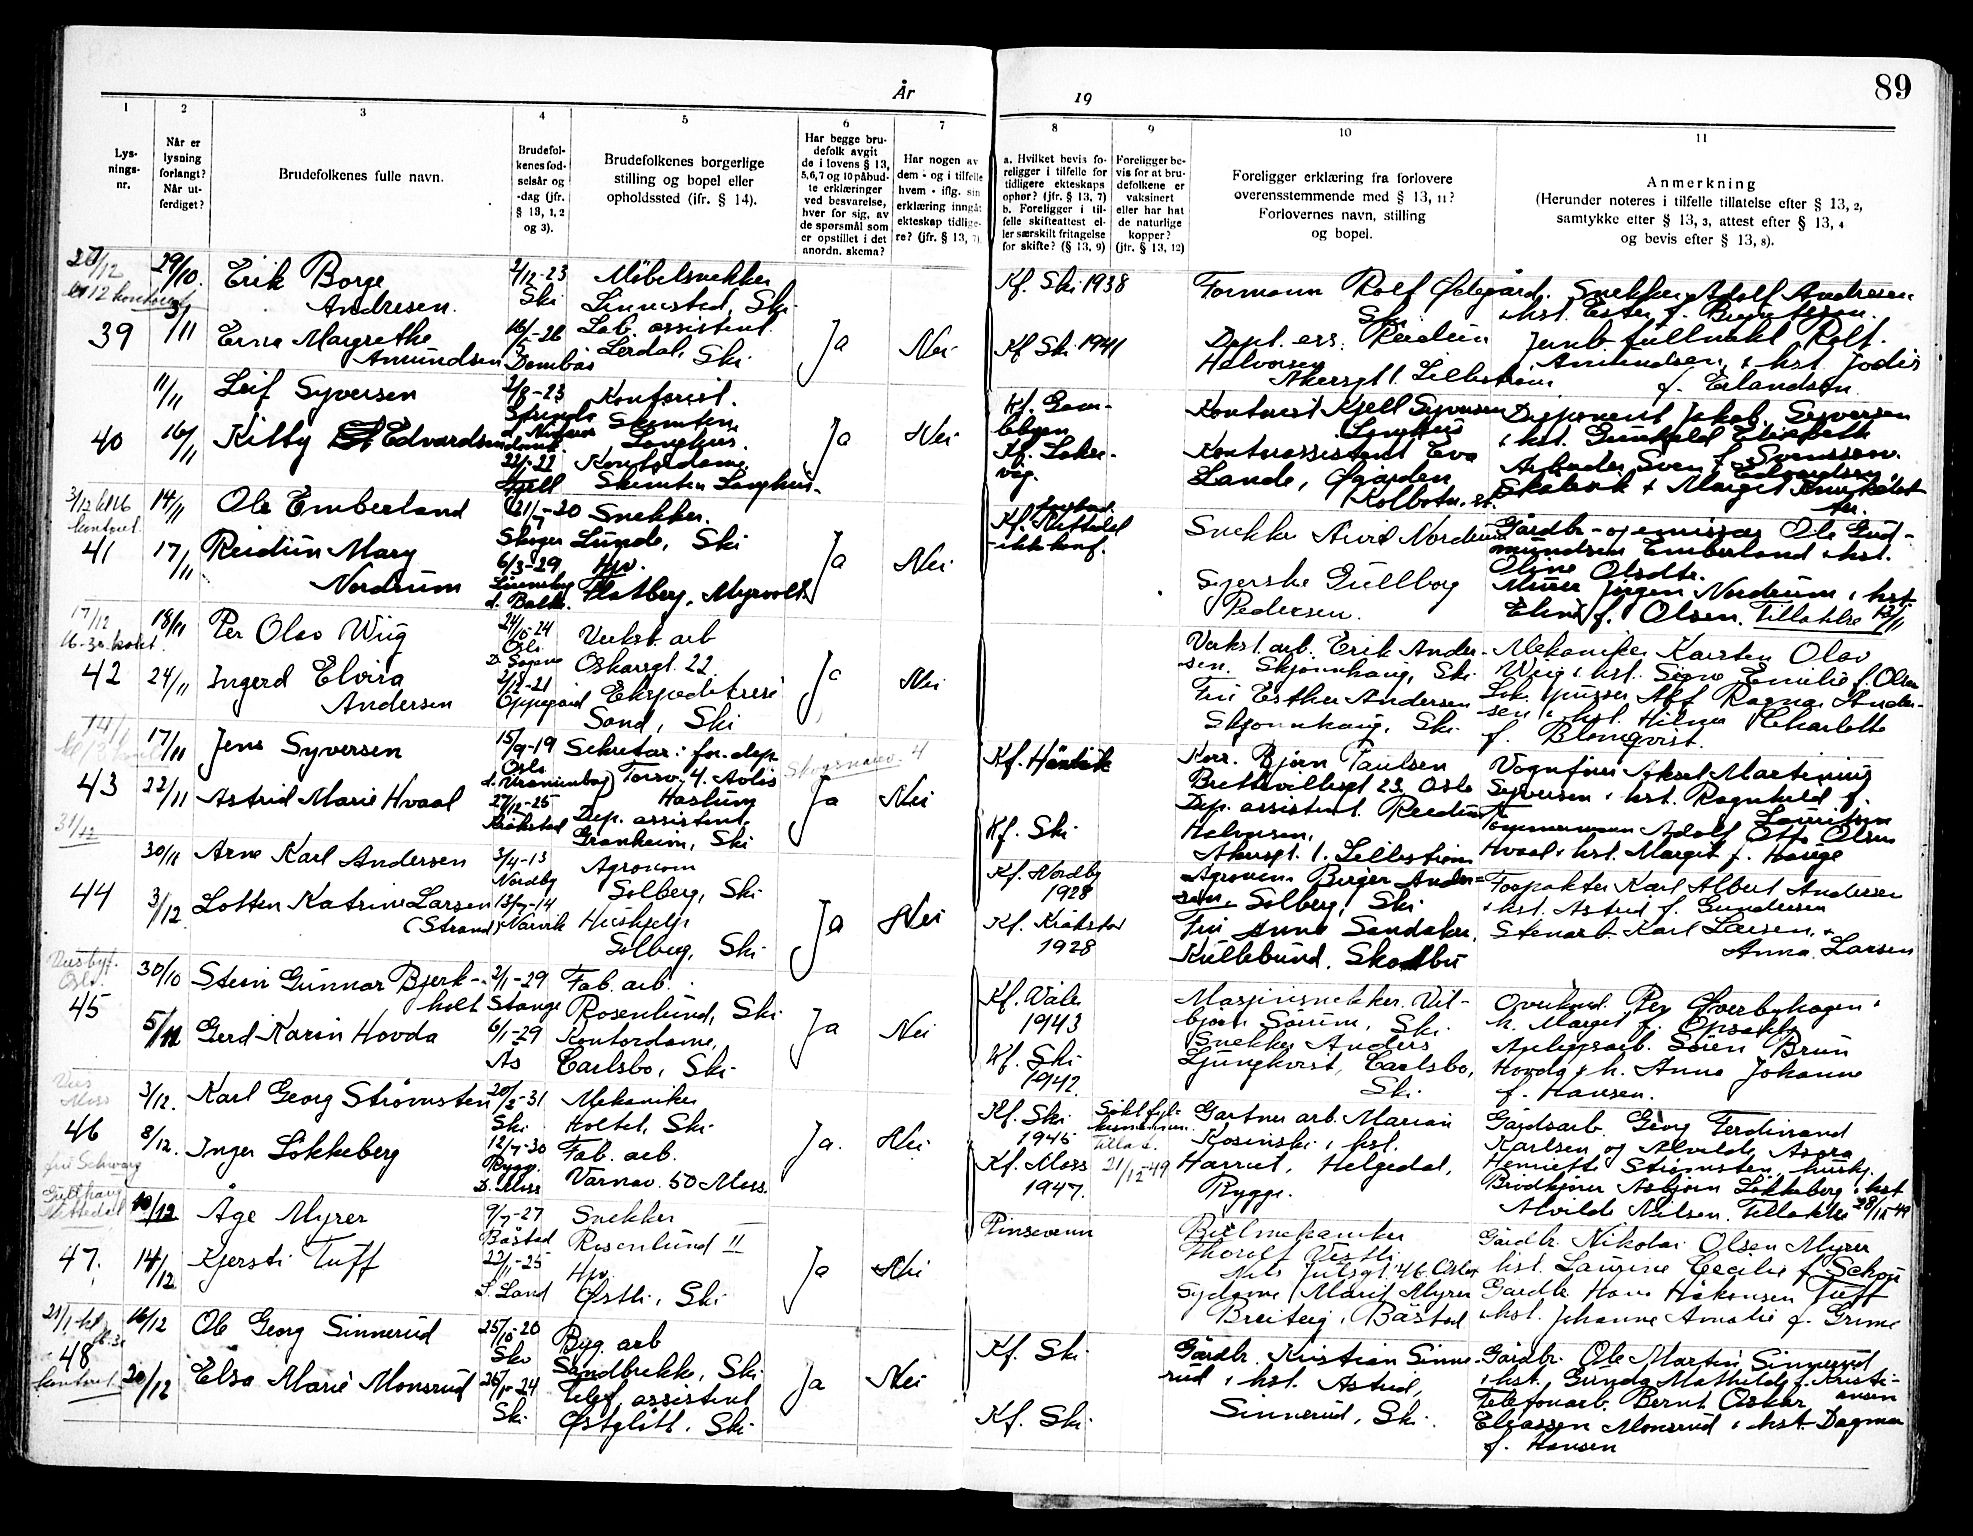 89
År
19
1
2
3
4
5
6
7
8
9
10
11
Lys-
nings-
nr.
Når er
lysning
forlangt?
Når ut-
ferdiget?
Brudefolkenes fulle navn.
Brudefol-
kenes fød-
selsår og
-dag (jfr.
§ 13, 1, 2
og 3).
Brudefolkenes borgerlige
stilling og bopel eller
opholdssted (ifr. § 14).
Har begge bru-
defolk avgit
de i lovens § 13,
5,6,7 og 10 påbud-
te erklæringer
ved besvarelse,
hver for sig, av
de spørsmål som
er opstillet i det
anordn. skema?
Har nogen av
dem - og i tilfelle
hvem - iflg. sin
erklæring inngåt
ekteskap tidlige-
re? (jfr. § 13, 7).
a. Hvilket bevis fo-
religger i tilfelle for
tidligere ekteskaps
ophør? (jfr. § 13, 7)
b. Foreligger i til-
felle skifteattest el-
ler særskilt fritagelse
for skifte? (§ 13, 9)
Foreligger be-
vis for at bru-
defolkene er
vaksinert
eller har hat
de naturlige
kopper?
(jfr. § 13, 12)
Foreligger erklæring fra forlovere
overensstemmende med § 13, 11?
Forlovernes navn, stilling
og bopel.
Anmerkning
(Herunder noteres i tilfelle tillatelse efter § 13, 2,
samtykke efter § 13, 3, attest efter § 13, 4
og bevis efter § 13, 8).
39
29/10.
Erik Borge
Andresen.
Erna Margrethe
Amundsen
2/12-23
Ski
Dombås
Møbelsnekker
Linnestad, Ski
Lab. assistent
Lerdal, Ski
Ja
Nei
Kf. Ski 1938
Kf. Ski 1941
Formann Rolf Ødegård.
Ski
Dept. ass. Reidun
Halvorsen
Akersgt 1. Lillestrøm
Snekker Adolf Andresen
i hst. Ester f. Berntsen.
Jernb. fullmekt Rolf
Amundsen, i hst. Jodis
f. Erlandsen
40
11/11
16/11
Leif Syversen
Kitty Edvardsen
2/8-23
Kontorist.
Skimten
Langhus.
Kontordame
Skimten Langhus.
Ja
Nei
Kontorist Kjell Syversen
Langhus
Kontorassistent Eva
Lande, Øgården
Kolbotn st.
Disponent Jakob Syversen
i hst. Gunhild Elisabeth
f. Svenssen.
Arbeider Sven Edvardsen
41
14/11
17/11
Ole Emberland
Reidun Mary
Nordrum
21/7-20
Skoger
6/3-29
Snekker.
Lunde, Ski
Hpv.
Flatberg, Myrvoll
Ja
Nei
- ikke konf.
Snekker Arvid Nordrum
Syerske Gullborg
Pedersen.
Gårdbr - og emissær Ole Gud-
mundsen Emberland i hst.
Oline Olsdtr.
Murer Jørgen Nordrum i hst
Eline f. Olsen. Tillatelse 12/11
42
17/12
18/11
24/11
Per Olav Wiig
Ingerd Elvira
Andersen
24/10-24
Oslo
D. Sogne
2/12-21
Oppegård
Verkst. arb
Oskarsgt. 22
Ekspeditrise
Sand, Ski
Ja
Nei
Verkst. arb. Erik Ander-
sen. Skjønnhaug, Ski
Fru Esther Andersen
Skjønnhaug, Ski
Mekaniker Karsten Olav
Wiig i hst. Signe Emilie f. Olsen
Lok. pusser Alf Ragnar Ander-
sen i hst. Hilma Charlotte
f. Blomqvist.
43
17/11
22/11
Jens Syversen
Astrid Marie Hvaal
15/9-19
Oslo
d. Uranienborg
27/12-25
Kråkstad
Sekretær i for. dep.
Torsv. 4. Avløs
Haslum
Dep. assistent.
Granheim, Ski
Skogsnarv. 4
Ja
Nei
Kf. Ski
Korr. Bjørn Paulsen
Brettevillesgt 23. Oslo
Dep. assistent. Reidun
Halvorsen,
Akersgt. 1. Lillestrøm
Vognfører Aksel Martinius
Syversen i hst. Ragnhild f.
Lauritsen
Tømmermann Adolf Otto Olsen
Hvaal i hst. Margit f. Hauge
44
31/12
30/11
3/12.
Arne Karl Andersen
Lotten Katrine Larsen
(Strand)
3/4-13
Nordby
13/7-14
Narvik
Agronom
Solberg, Ski
Hushjelp
Solberg, Ski
Ja
Nei
Kf. Nordby
1928
Kf. Kråkstad
1928
Agronom Birger Ander-
sen. Solberg, Ski
Fru Anna Sandaker,
Kullebund. Skodbu
Forpakter Karl Albert Andersen
i hst. Astrid f. Gundersen
Stenarb. Karl Larsen, &
Anna Larsen
45
30/10
5/11
Stein Gunnar Bjerk-
holt
Gerd Karin Hovda
2/1-29
Stange
6/1-29
Ås
Fab. arb.
Rosenlund, Ski
Kontordame,
Carlsbo, Ski
Ja
Nei
Kf. Våler
1943
Kf. Ski
1942.
Maskinsnekker Vil-
bjørn Sørum, Ski
Snekker Anders
Ljungkvist, Carlsbo,
Ski
h. Margit f. Opsahl
Anleggsarb. Søren Brun
Hovda & h. Anna Johanne
f. Hansen.
46
3/12.
8/12.
Karl Georg Strømsten
Inger Løkkeberg
20/2-31
Ski
12/7-30
Rygge
D. Moss
Mekaniker
Holtet, Ski
Fab. arb.
Varnav. 50 Moss.
Ja.
Nei
Kf. Ski
1945
Kf. Moss
1947.
21/12-49
Gartner arb. Marian
Kosinski i hst.
Harriet, Helgedal,
Rygge.
Gårdsarb. Georg Ferdinand
Karlsen og Alvilde Asora
Henriette Strømsten, husky.
Brødkjører Asbjørn Løkkeberg i hst
Alvilde Nilsen. Tillatelse 28/12 49
47.
10/12
14/12
Åge Myrer
Kjersti Tuff
9/7-27
Båstad
22/1-25
S. Land
Snekker
Rosenlund II
Hpv.
Østli, Ski
Ja
Nei
Pinsevenn
Bilmekaniker
Thorolf Vestli
Nils Juelsgt 46. Oslo
Sydame Marit Myrer
Breiteig, Båstad
Gårdbr. Nikolai Olsen Myrer
hst. Laurine Cecilie f. Schøje
Gårdbr. Hans Håkonsen Tuff
i hst. Johanne Amalie f. Grime
48
16/12
20/12
Ole Georg Sinnerud
Elsa Marie Monsrud
25/10-20
Ski
26/1-24
Ski
Byg. arb
Sandbekk, Ski
Telef. assistent
Østglött, Ski
Ja
Nei
Kf. Ski
Kf. Ski
Gårdbr. Kristian Sinne-
rud i hst. Astrid,
Sinnerud, Ski.
Gårdbr. Ole Martin Sinnerud
i hst. Gunda Mathilde f. Kristi-
ansen
Telefonarb. Bernt Oskar
Eliassen Monsrud i hst. Dagmar
f. Hansen